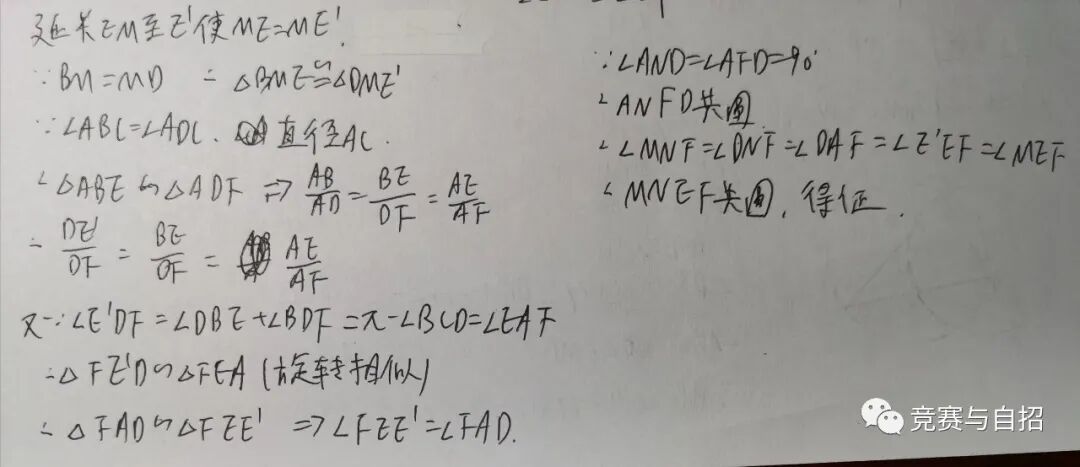 延长EM至E'使ME=ME'.
∵BM=MD ∴△BME≌△DME'
∵∠ABC=∠ADC. 直径AC.
∴△ABE∽△ADF ⇒ AB/AD=BE/DF=AE/AF
∴ DE'/DF = BE/DF = AE/AF
又∵∠E'DF=∠DBE+∠BDF=π-∠BCD=∠EAF
∴△FE'D∽△FEA(旋转相似)
∴△FAD∽△FEE' ⇒∠FEE'=∠FAD.
∵∠AND=∠AFD=90°
∴ANFD共圆
∴∠MNF=∠DNF=∠DAF=∠E'EF=∠MEF
∴MNEF共圆,得证.
竞赛与自招